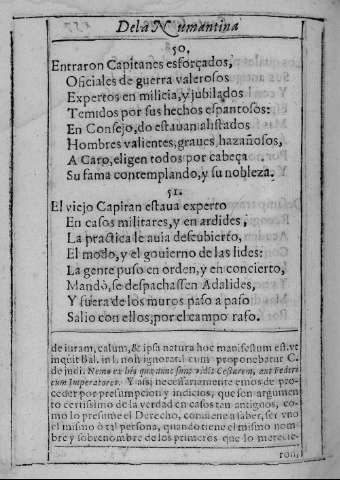 De la Numantina
50.
Entraron Capitanes esforçados,
Oficiales de guerra valerosos
Expertos en milicia, y jubilados
Temidos por sus hechos espantosos:
En Consejo, do estauan alistados
Hombres valientes, graues, hazañosos,
A Caro, eligen todos por cabeça
Su fama contemplando, y su nobleza.
51.
El viejo Capitan estaua experto
En casos militares, y en ardides,
La practica le auia descubierto,
El modo, y el gouierno de las lides:
La gente puso en orden, y en concierto,
Mandò, se despachassen Adalides,
Y fuera de los muros paso a paso
Salio con ellos, por el campo raso.
de iuram, calum, & ipsi natura hoc manifestum est, vt
inquit Bal. in l. non ignorat. cum proponebatur C.
de judi. Nemo ex his qui nunc sunt vidit Cesarem, aut Federi
cum Imperatores. Y assi necessariamente emos de pro-
ceder por presumpcion y indicios, que son argumen
to certissimo de la verdad en casos tan antigoos, co-
mo lo presume el Derecho, conuiene a saber, ser vno
el mismo ò tal persona, quando tiene el mismo nom
bre y sobrenombre de los primeros que lo merecie-
ron,